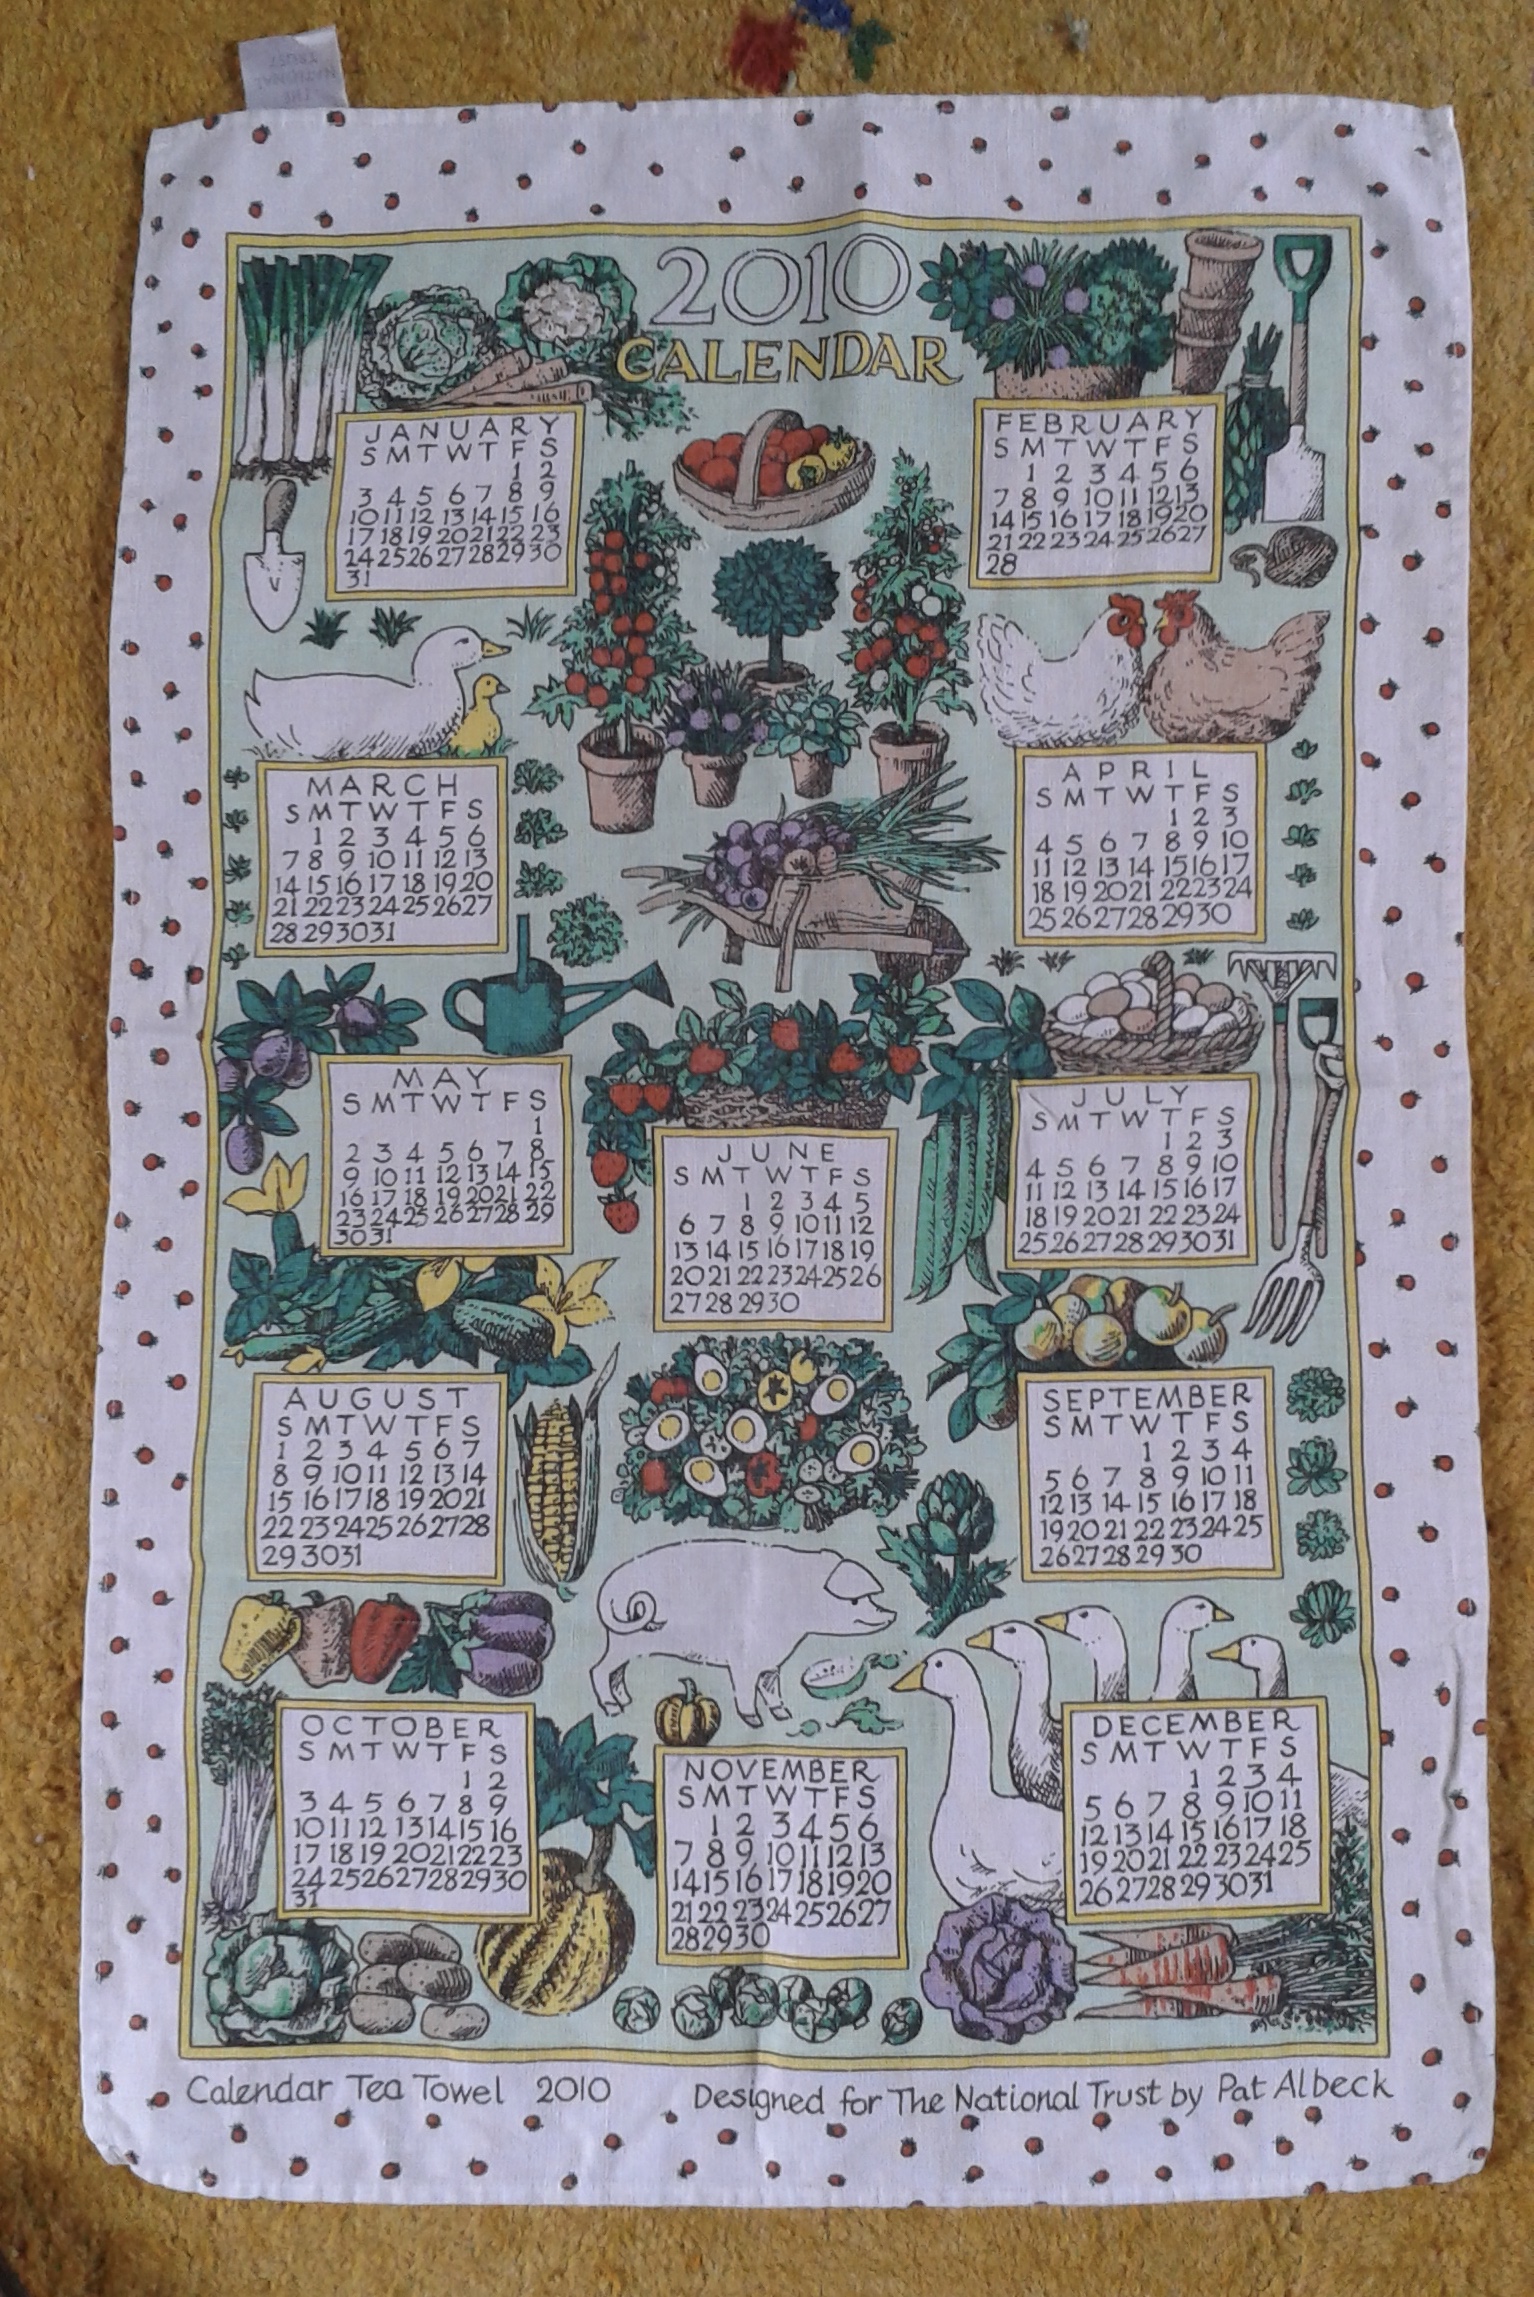 THE
NATIONAL
TRUST
2010
CALENDAR
JANUARY
S M T W T F S
1 2
3 4 5 6 7 8 9
10 11 12 13 14 15 16
17 18 19 20 21 22 23
24 25 26 27 28 29 30
31
FEBRUARY
S M T W T F S
1 2 3 4 5 6
7 8 9 10 11 12 13
14 15 16 17 18 19 20
21 22 23 24 25 26 27
28
MARCH
S M T W T F S
1 2 3 4 5 6
7 8 9 10 11 12 13
14 15 16 17 18 19 20
21 22 23 24 25 26 27
28 29 30 31
APRIL
S M T W T F S
1 2 3
4 5 6 7 8 9 10
11 12 13 14 15 16 17
18 19 20 21 22 23 24
25 26 27 28 29 30
MAY
S M T W T F S
1
2 3 4 5 6 7 8
9 10 11 12 13 14 15
16 17 18 19 20 21 22
23 24 25 26 27 28 29
30 31
JUNE
S M T W T F S
1 2 3 4 5
6 7 8 9 10 11 12
13 14 15 16 17 18 19
20 21 22 23 24 25 26
27 28 29 30
JULY
S M T W T F S
1 2 3
4 5 6 7 8 9 10
11 12 13 14 15 16 17
18 19 20 21 22 23 24
25 26 27 28 29 30 31
AUGUST
S M T W T F S
1 2 3 4 5 6 7
8 9 10 11 12 13 14
15 16 17 18 19 20 21
22 23 24 25 26 27 28
29 30 31
SEPTEMBER
S M T W T F S
1 2 3 4
5 6 7 8 9 10 11
12 13 14 15 16 17 18
19 20 21 22 23 24 25
26 27 28 29 30
OCTOBER
S M T W T F S
1 2
3 4 5 6 7 8 9
10 11 12 13 14 15 16
17 18 19 20 21 22 23
24 25 26 27 28 29 30
31
NOVEMBER
S M T W T F S
1 2 3 4 5 6
7 8 9 10 11 12 13
14 15 16 17 18 19 20
21 22 23 24 25 26 27
28 29 30
DECEMBER
S M T W T F S
1 2 3 4
5 6 7 8 9 10 11
12 13 14 15 16 17 18
19 20 21 22 23 24 25
26 27 28 29 30 31
Calendar Tea Towel 2010 Designed for The National Trust by Pat Albeck